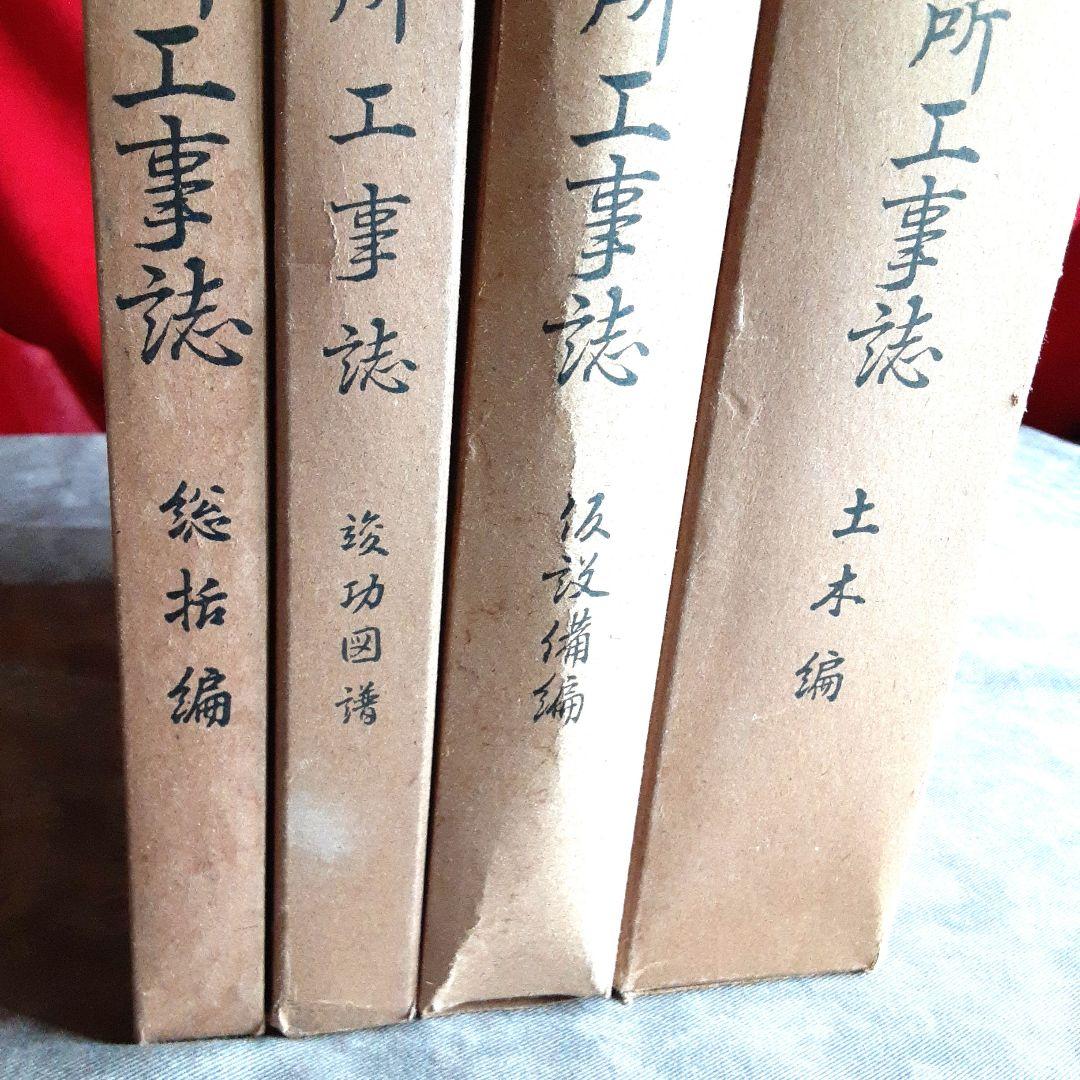 所工事誌 土木編
所工事誌 仮設備編
所工事誌 竣功図譜
工事誌 総括編